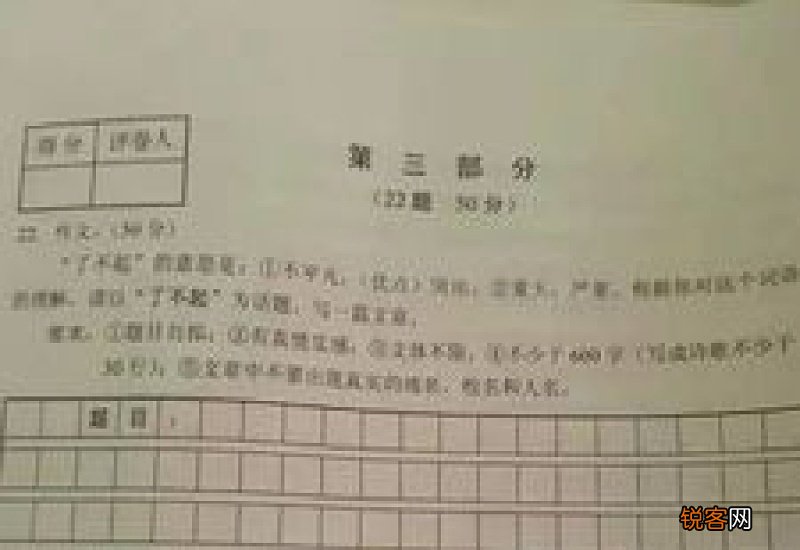 得分 评卷人
第三部分
(22题 50分)
22. 作文。(50分)
“了不起”的意思是：①不平凡，(优点)突出；②重大，严重。根据你对这个词语
的理解，请以“了不起”为话题，写一篇文章。
要求：①题目自拟；②有真情实感；③文体不限；④不少于600字(写成诗歌不少于
30行)；⑤文章中不要出现真实的地名、校名和人名。
题目：
锐客网